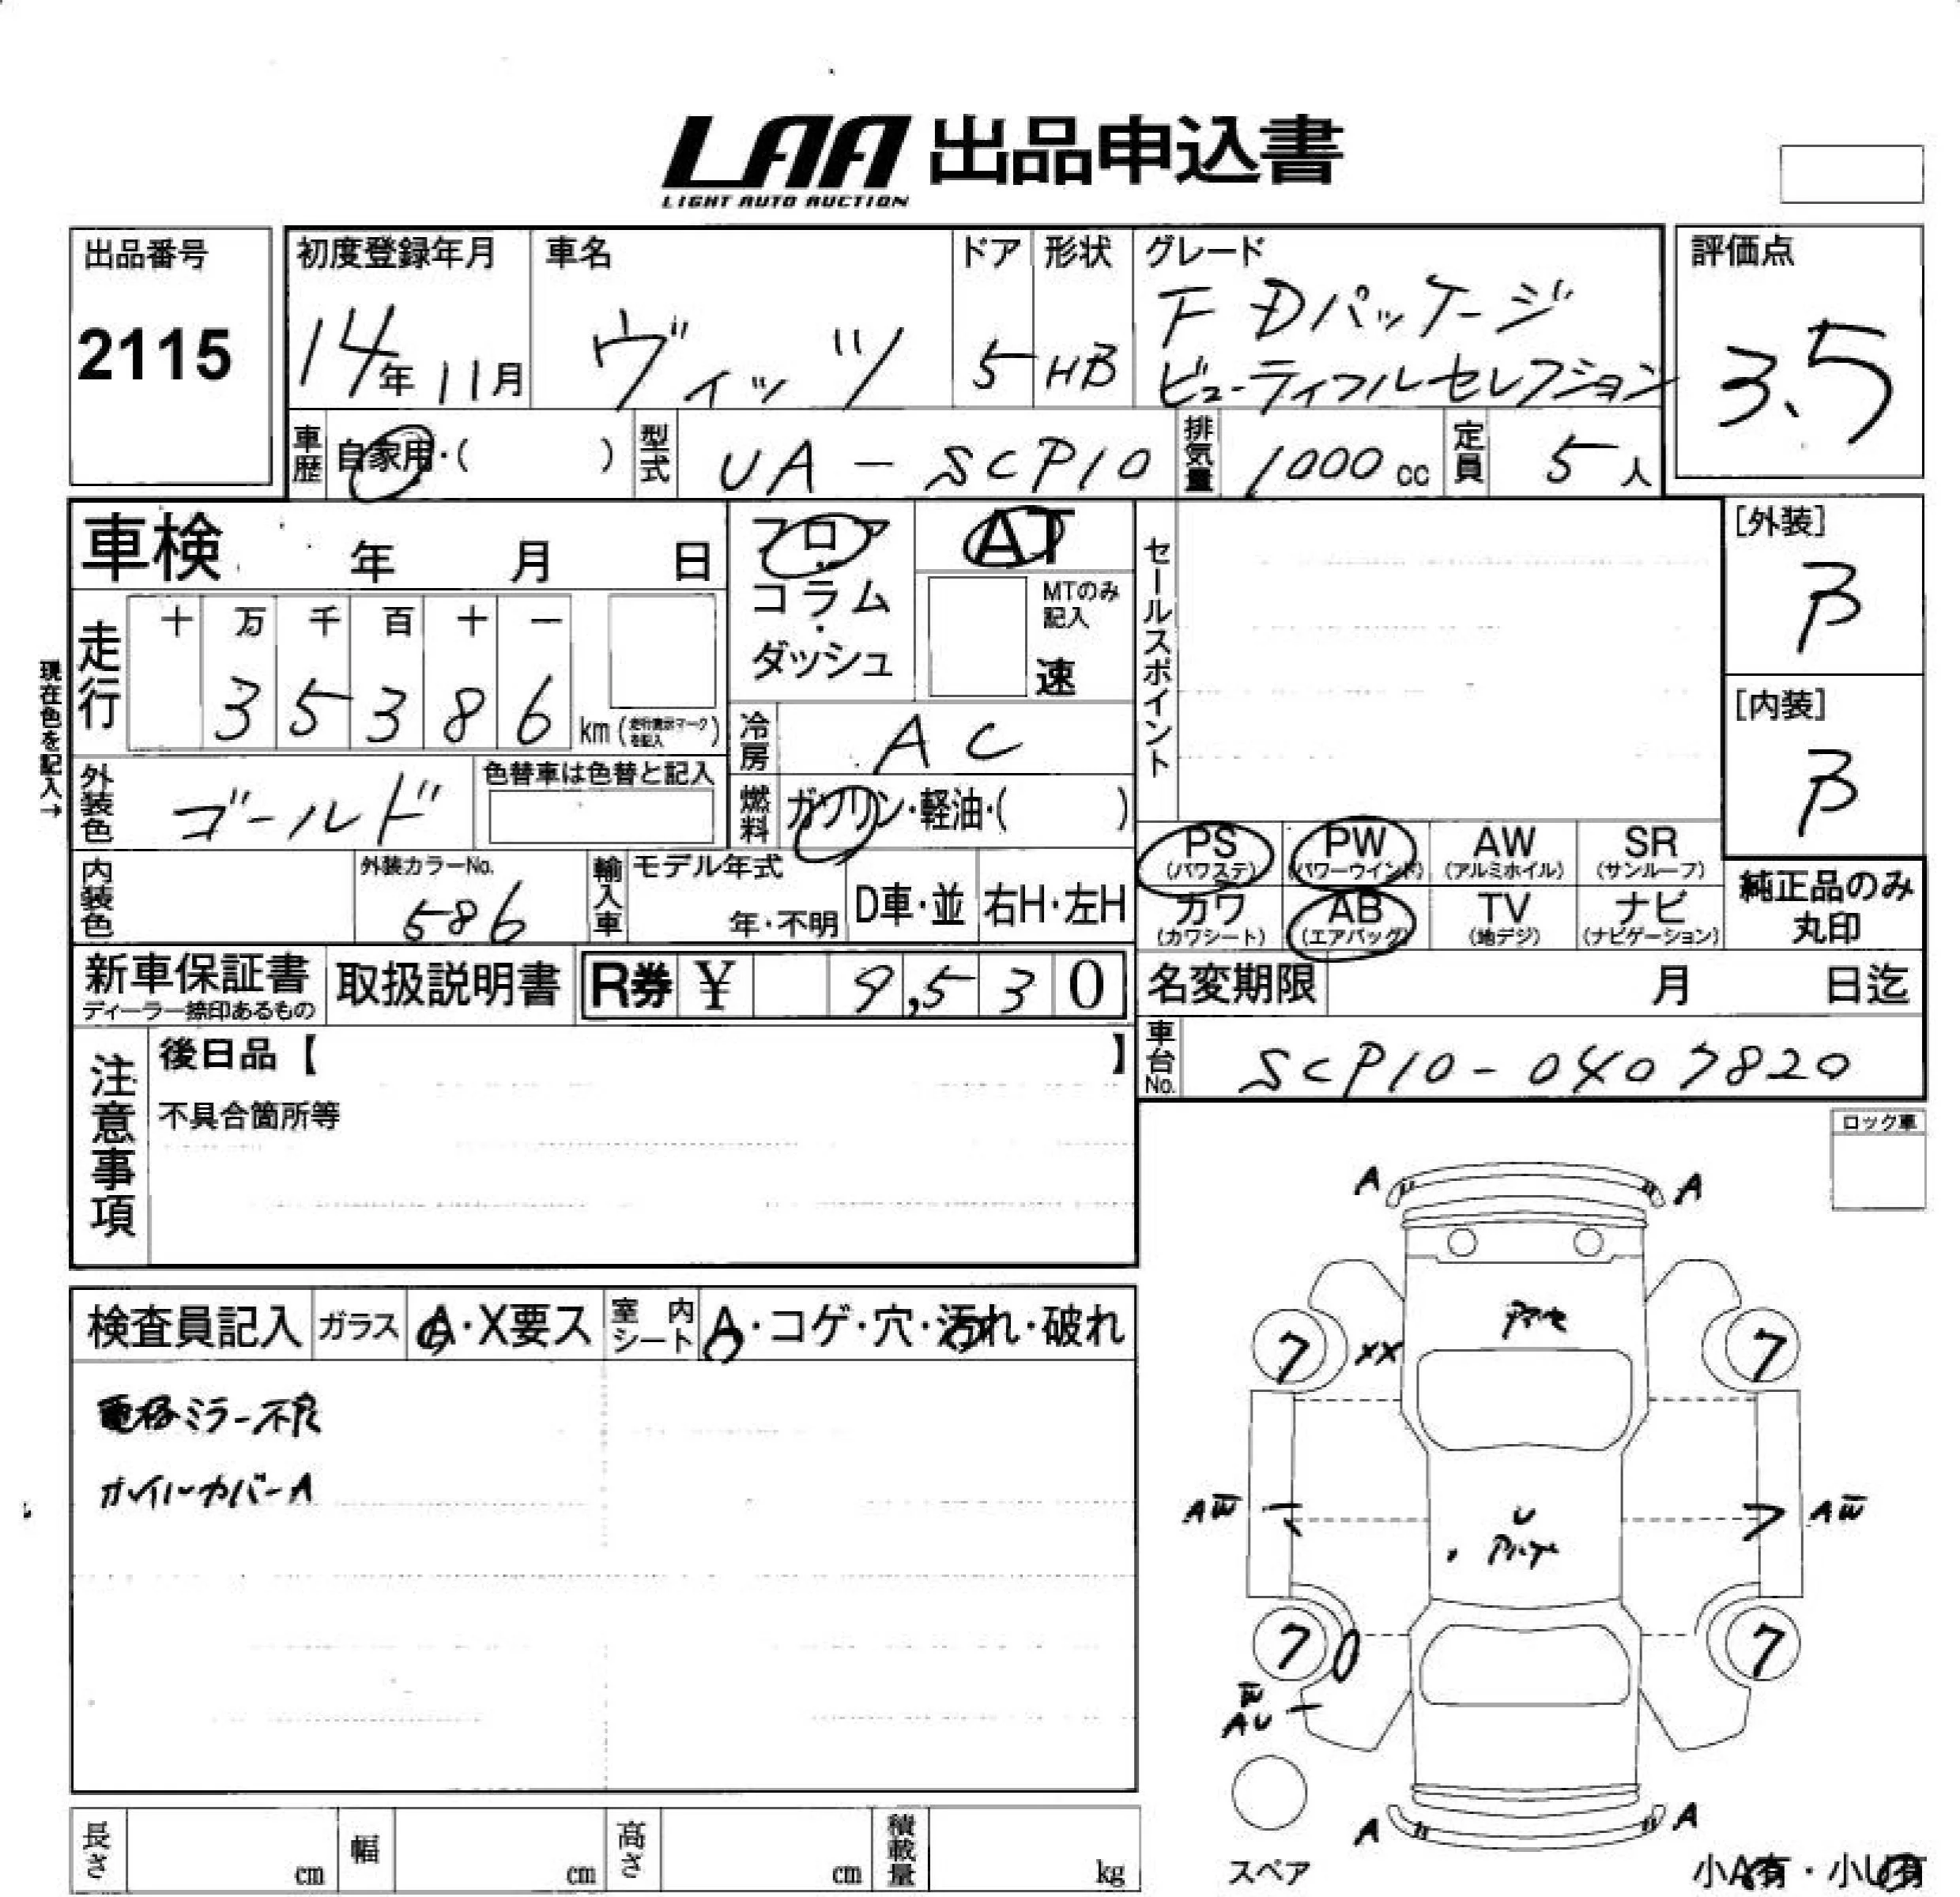 LAA 出品申込書
LIGHT AUTO AUCTION
出品番号
2115
初度登録年月
14年11月
車名
ヴィッツ
ドア
5
形状
HB
グレード
F Dパッケージ
ビューティフルセレクション
評価点
3.5
車歴
自家用・( )
型式
UA-SCP10
排気量
1000cc
定員
5人
車検 年 月 日
フロア
コラム
・
ダッシュ
AT
MTのみ
記入
速
セールスポイント
[外装]
B
[内装]
B
現在色を記入→
走行
十 万 千 百 十 一
3 5 3 8 6
km(走行表示マークを記入)
冷房
AC
外装色
ゴールド
色替車は色替と記入
燃料
ガソリン・軽油・( )
PS
(パワステ)
PW
(パワーウインド)
AW
(アルミホイル)
SR
(サンルーフ)
カワ
(カワシート)
AB
(エアバッグ)
TV
(地デジ)
ナビ
(ナビゲーション)
純正品のみ
丸印
内装色
外装カラーNo.
586
輸入車
モデル年式
年・不明
D車・並
右H・左H
新車保証書
ディーラー捺印あるもの
取扱説明書
R券 ¥ 9,530
名変期限 月 日迄
車台No.
SCP10-0407820
注意事項
後日品【 】
不具合箇所等
ロック車
検査員記入
ガラス
A・X要ス
室内シート
A・コゲ・穴・汚れ・破れ
電格ミラー不良
オイルカバーA
A A
7 XX 7
AW U AW
7 7
W
AU
A A
スペア
小A有・小U有
長さ cm
幅 cm
高さ cm
積載量 kg